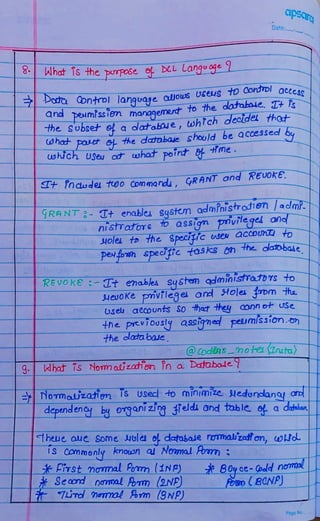 apsara
Date:
8. What is the purpose of DCL Language ?
⇒ Data control language allows users to control access
and permission management to the database. It is
the subset of a database, which decides that
what part of the database should be accessed by
which user at what point of time.
It includes two commands, GRANT and REVOKE.
GRANT :- It enables system administration / admi-
nistrators to assign privileges and
roles to the specific user accounts to
perform specific tasks on the database.
REVOKE :- It enables system administrators to
revoke privileges and roles from the
user accounts so that they cannot use
the previously assigned permission on
the database.
@coders_notes (Insta)
9. What is Normalization in a Database ?
⇒ Normalization is used to minimize redundancy and
dependency by organizing fields and table of a database
There are some rules of database normalization, which
is commonly known as Normal Form :
* First normal Form (1NF) * Boyce-Codd normal
* Second normal Form (2NF) Form (BCNF)
* Third normal Form (3NF)
Page No.